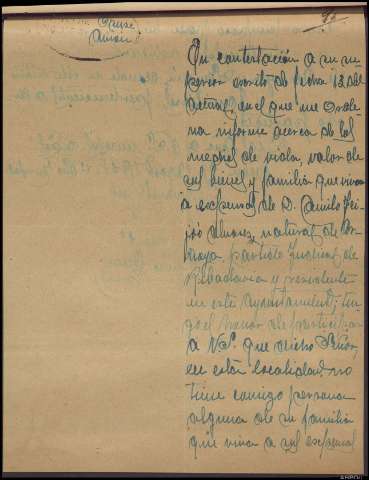 En contestación a su su
perior escrito de fecha 13 del
actual, en el que me orde
na informe acerca de los
medios de vida, valor de
sus bienes y familia que viva
a expensas de D. Camilo Fei
joó Alvarez, natural de
partido Judicial de
Ribadavia y residente
en este ayuntamiento; ten
go el honor de participar
a V.S. que dicho Señor,
en esta localidad no
tiene consigo persona
alguna de su familia
que viva a sus expensas